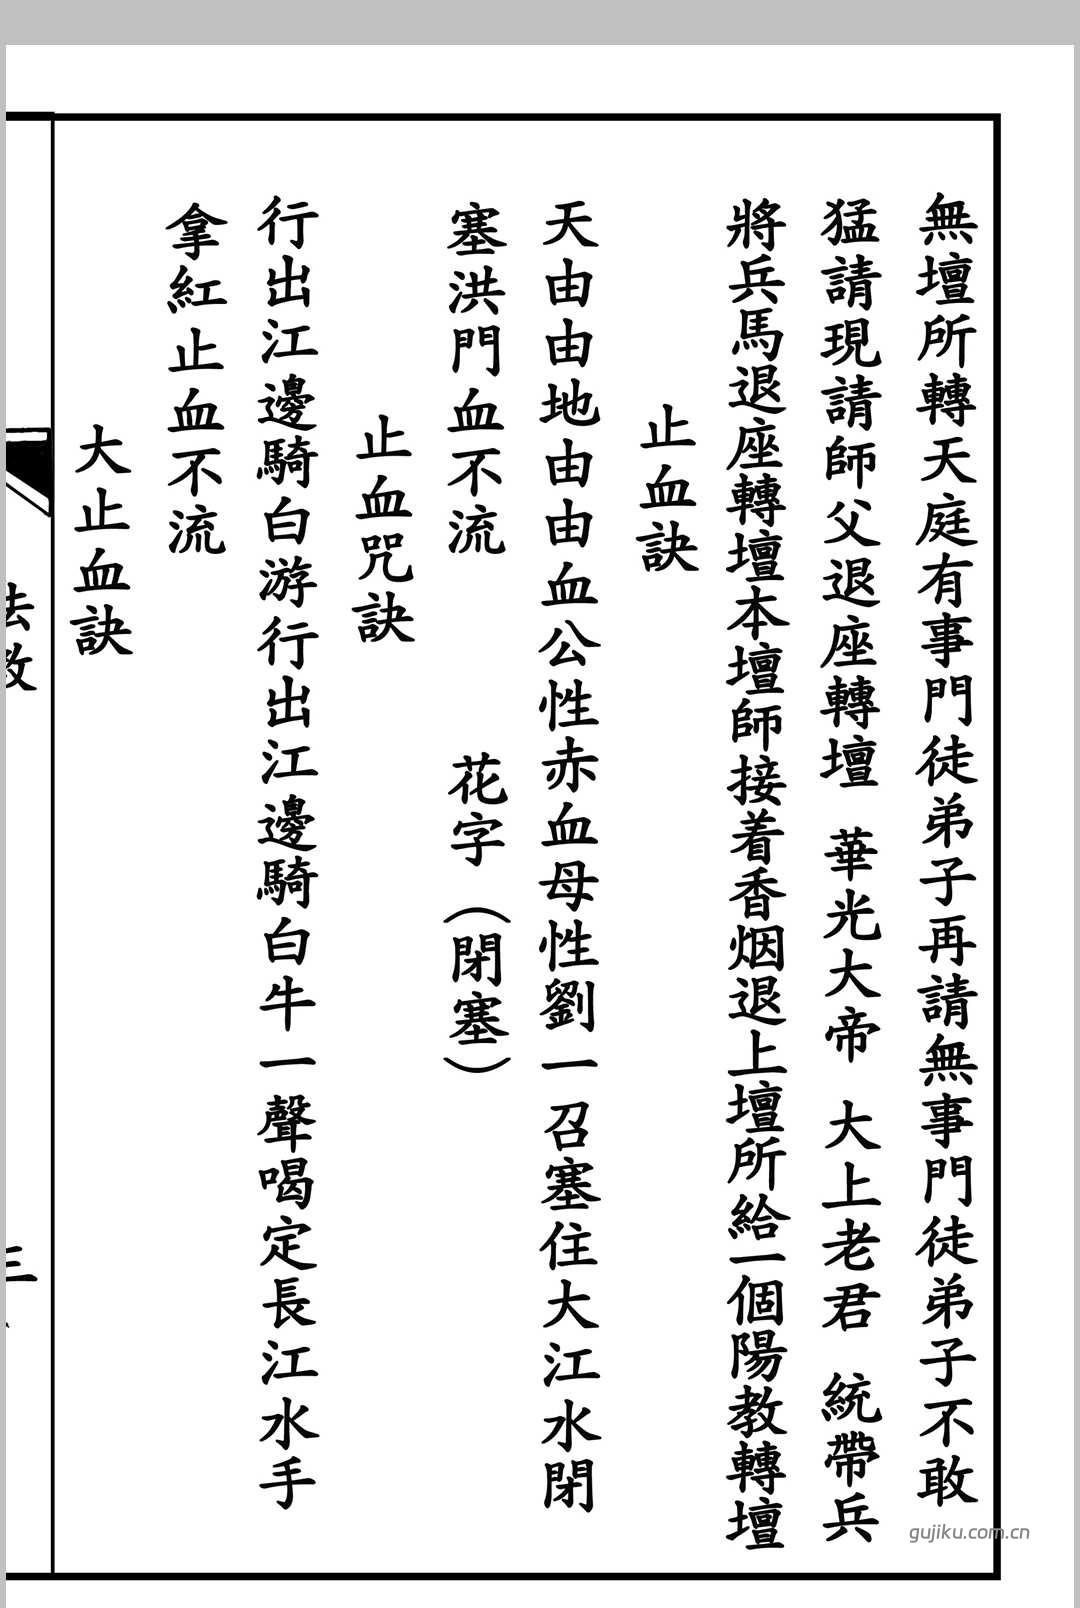 無壇所轉天庭有事門徒弟子再請無事門徒弟子不敢
猛請現請師父退座轉壇 華光大帝 大上老君 統帶兵
將兵馬退座轉壇本壇師接着香烟退上壇所給一個陽教轉壇
止血訣
天由由地由由血公性赤血母性劉一召塞住大江水閉
塞洪門血不流 花字（閉塞）
止血咒訣
行出江邊騎白游行出江邊騎白牛一聲喝定長江水手
拿紅止血不流
大止血訣
gujiku.com.cn